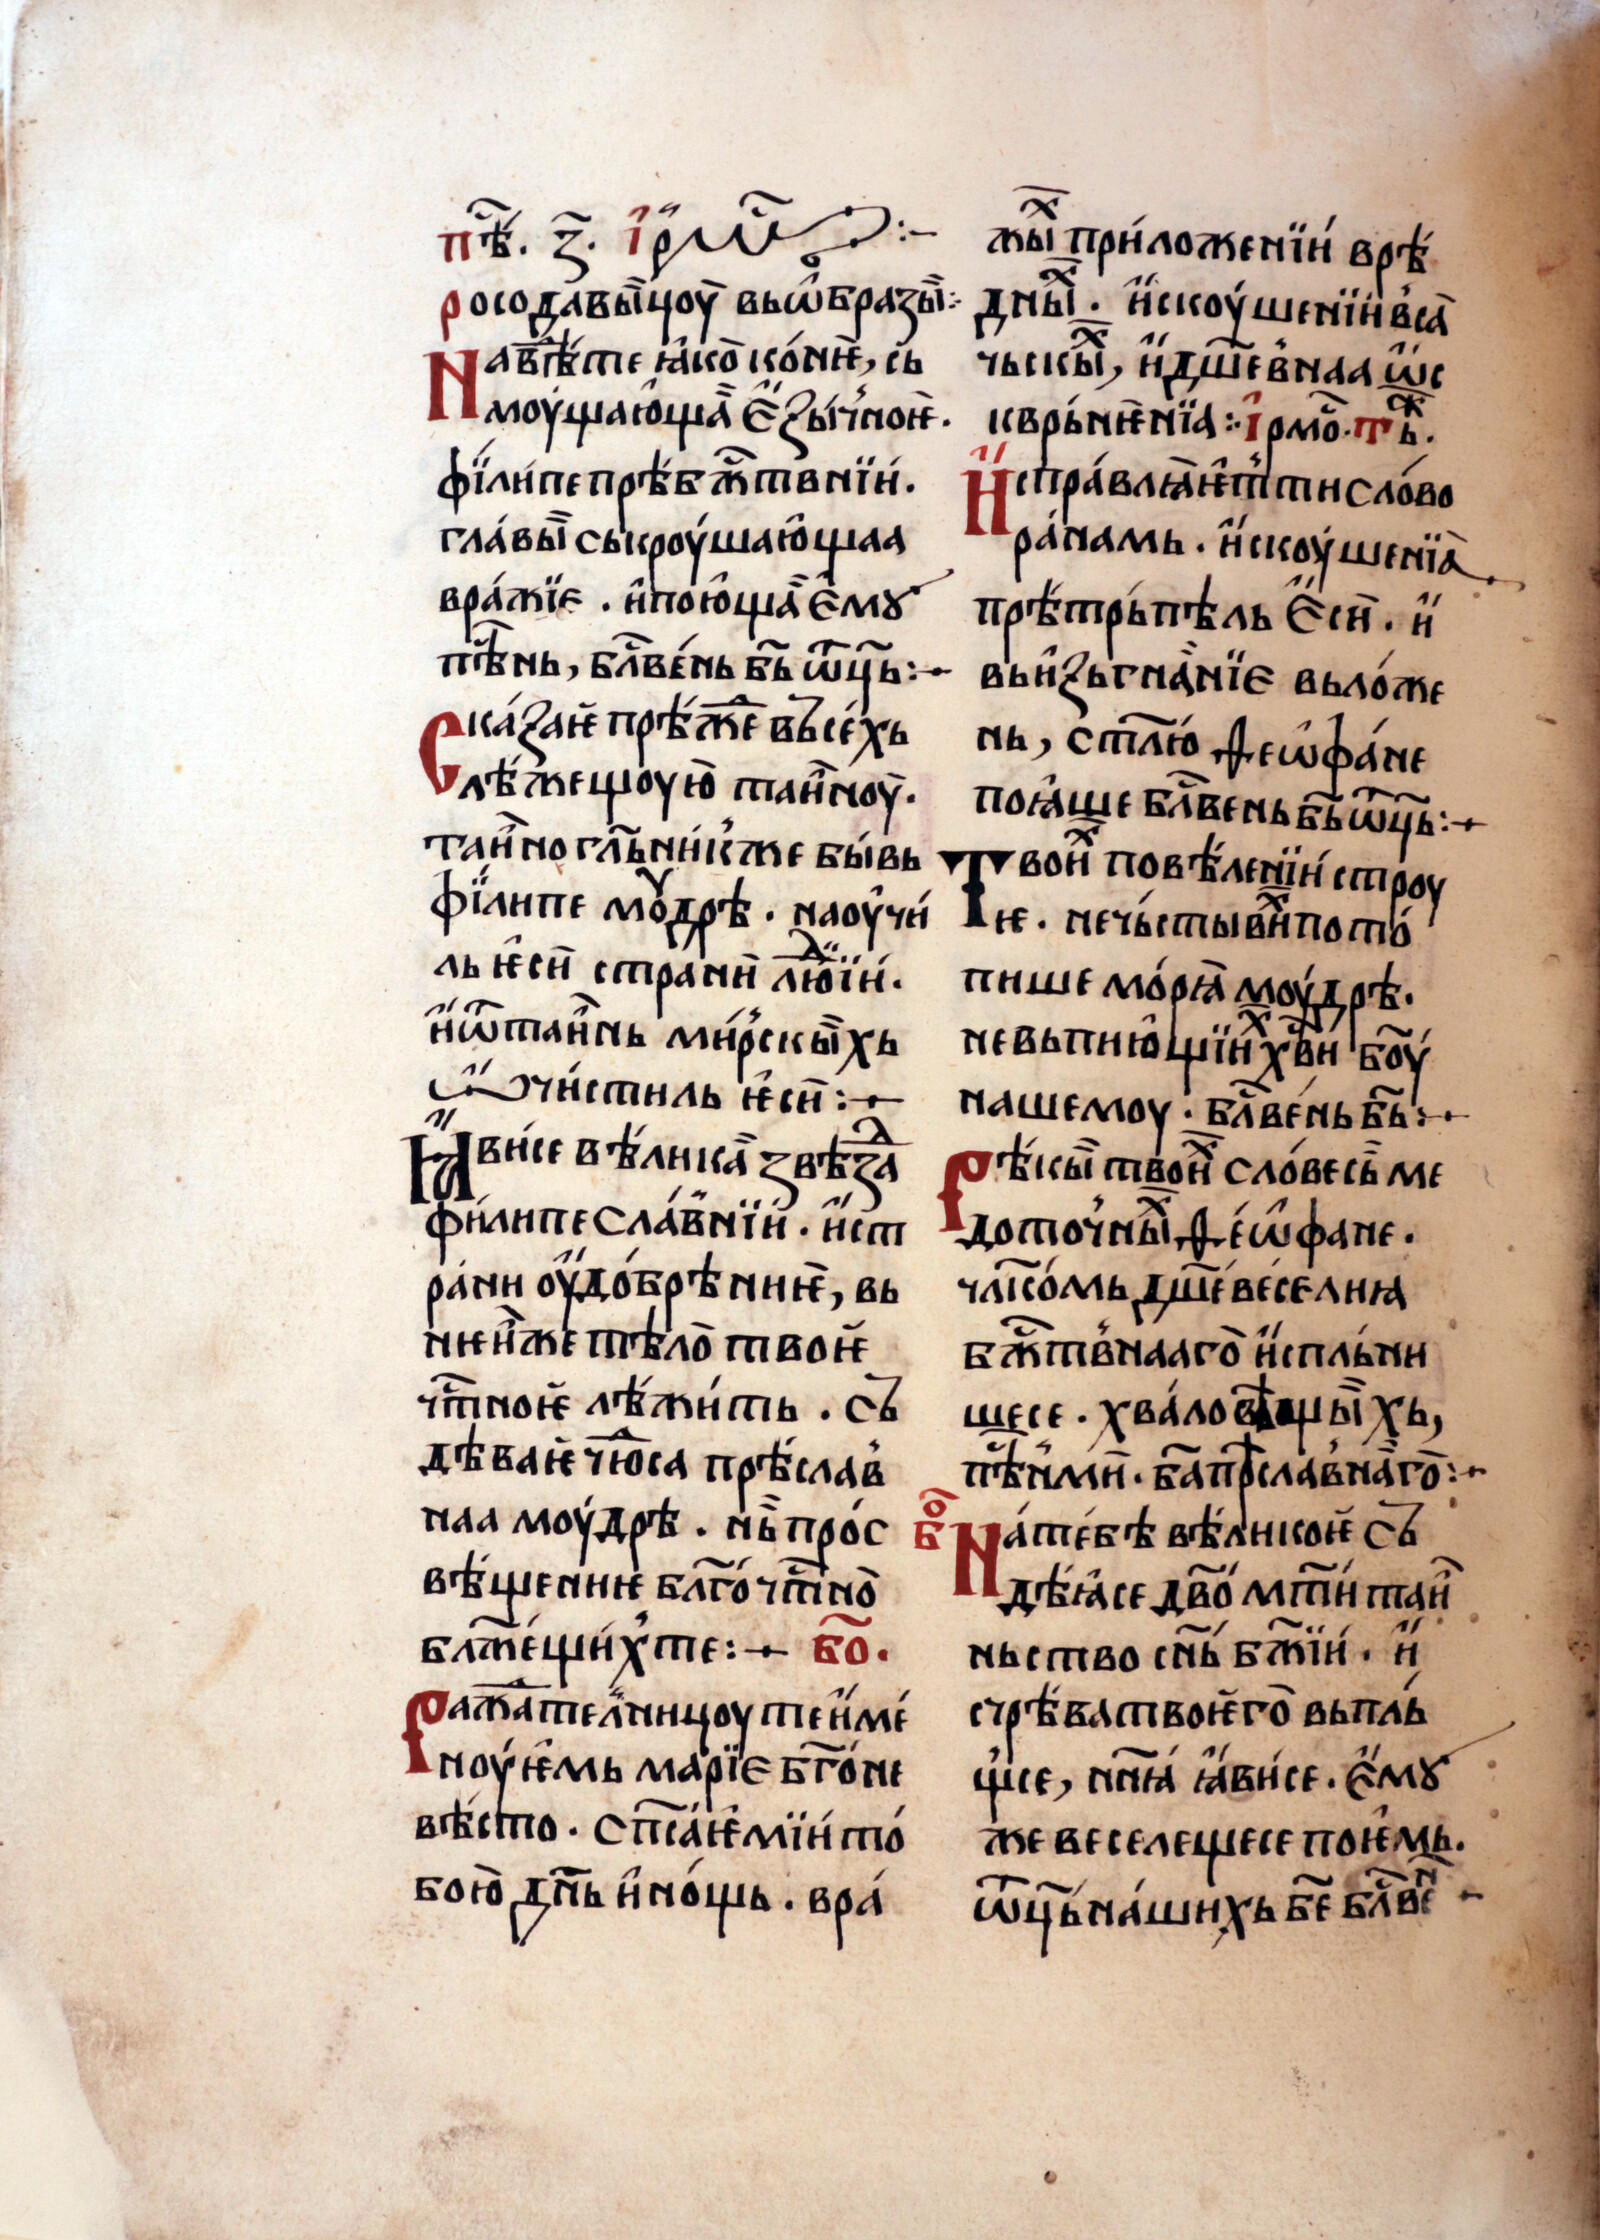 пѣ҇. з҃. і҆рмѡ҇ :–
росодавы̏ цоу̏ вьѡ҆бразы̏ :
Навѣ́те ꙗ҆ко̀ ко́нѥ, сь
моу́щаю҆ща̏ є҆зы́ч'ноѥ.
фі́липе прѣ́бж҃твнїи́.
гла́вы̏ ськроу́шаю҆щаа
вра́жїє . и҆ пою҆ща̏ є҆мꙋ
пѣ҇нь, бл҃ве́нь бь҃ ѿц҃ь :–
Ска́заѥ прѣ́ж҇е въсе́хь
лѣ́жещоую̀ таи̏ноу̏.
таи̏но гл҃ьни́к'же бы́вь
фі́липе моу҆дрѣ . наоу҆чи́
ль ѥ҆си̏ страни̏ лю́їи.
и҆ ѿтаи̏нь ми́р'скы̏хь
ѡ҆чи́стиль ѥ҆си̏ :–
Ꙗ҆ви́се вѣ́лика̏ звѣзⷣа
фи́липе сла́в'нїи . и҆ ст
ра́ни оу҆до́брѣниѥ̀, вь
нѥи̏же тѣло̀ твоѥ̀
чт҃ноѥ лѣ́жи́ть . съ
дѣваѥ чю҇са прѣ́слав'
наа моу́дрѣ . нь̏ про́с
вѣ́щениѥ бл҃го́чт҃но̀
бл҃же́щи́х'те :– бо҃.
Раж҇ател'ницоу те и҆ме́
ноу́ѥмь марі́є бг҃о́не
вѣ́сто . сп҃са́ѥмїи то́
бою̀ дн҃ь и҆ но́щь . вра́
жы̏ⷯ при́ложенїи́ врѣ́
дны̏ⷯ . и҆скоу́шенїи в'са̏
чьскы̏ⷯ, и҆ дш҃е́в'наа ѡ҆с
квры́нѥнїа :· і҆рмо҇. тъⷤ.
И҆спра́влꙗ̏ѥт' ти сло́во
ра́намь . и҆скоу́шенїа̏
прѣ́трьпѣль є҆си̏ . и҆
вьи҆зьгна̏нїє вьло́же
нь, ст҃лю́ ѳеѡ҆фа́не
поꙗ́ше бл҃вень бь҃ ѿц҃ь :–
Твои̏ⷯ повѣлени́и строу
ѥ . нечьстывы̏ⷯ пото́
пише мо́рꙗ̏ моу́дрѣ.
невьпию҆щїи̏ⷯ х҇ви́ бо҃у
нашемоу . бл҃ве́нь бь҃ :–
Рѣ́кы̏ твои̏ⷯ сло́весь̏ ме
доточ'ны̏ⷯ ѳе́ѡ҆фане.
чл҃ко́мь дш҃е́ ве́селиꙗ
бж҃тв'нааго̀ и҆спль́ни
шесе . хва́ловѣщы̏хь,
пѣ҇н'ми̏ . ба҃ прⷭ҇лав'на̏го̀ :–
бо҃ На́ те́бѣ вѣ́ликоѥ съ
дѣ́ꙗсе дв҃о́ мт҃и́ таи̏
ньство сн҃ь́ бж҃їи . и҆
с'чрѣ́ва твоѥго̀ вьпль́
щ'се, нн҃ꙗ́ ꙗ҆ви́се . є҆мꙋ
же веселещесе поѥ҆мь.
ѿц҃ь на́шихь бе҃ бл҃веⷩ҇